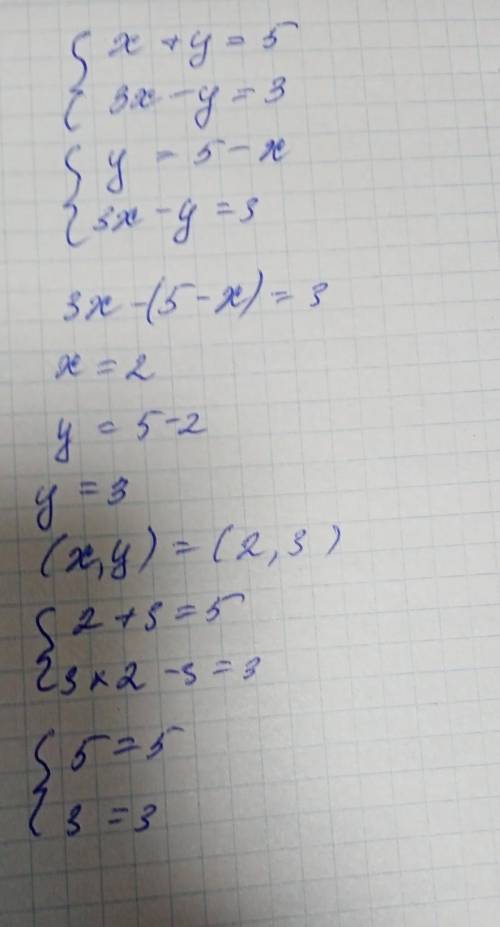 { x + y = 5
{ 3x - y = 3
{ y = 5 - x
{ 3x - y = 3
3x - (5 - x) = 3
x = 2
y = 5 - 2
y = 3
(x, y) = (2, 3)
{ 2 + 3 = 5
{ 3 × 2 - 3 = 3
{ 5 = 5
{ 3 = 3